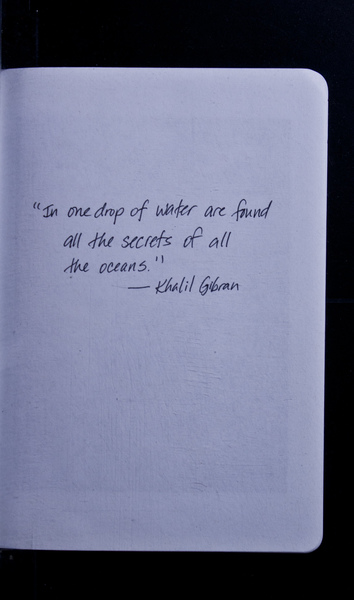 "In one drop of water are found
all the secrets of all
the oceans."
— Khalil Gibran